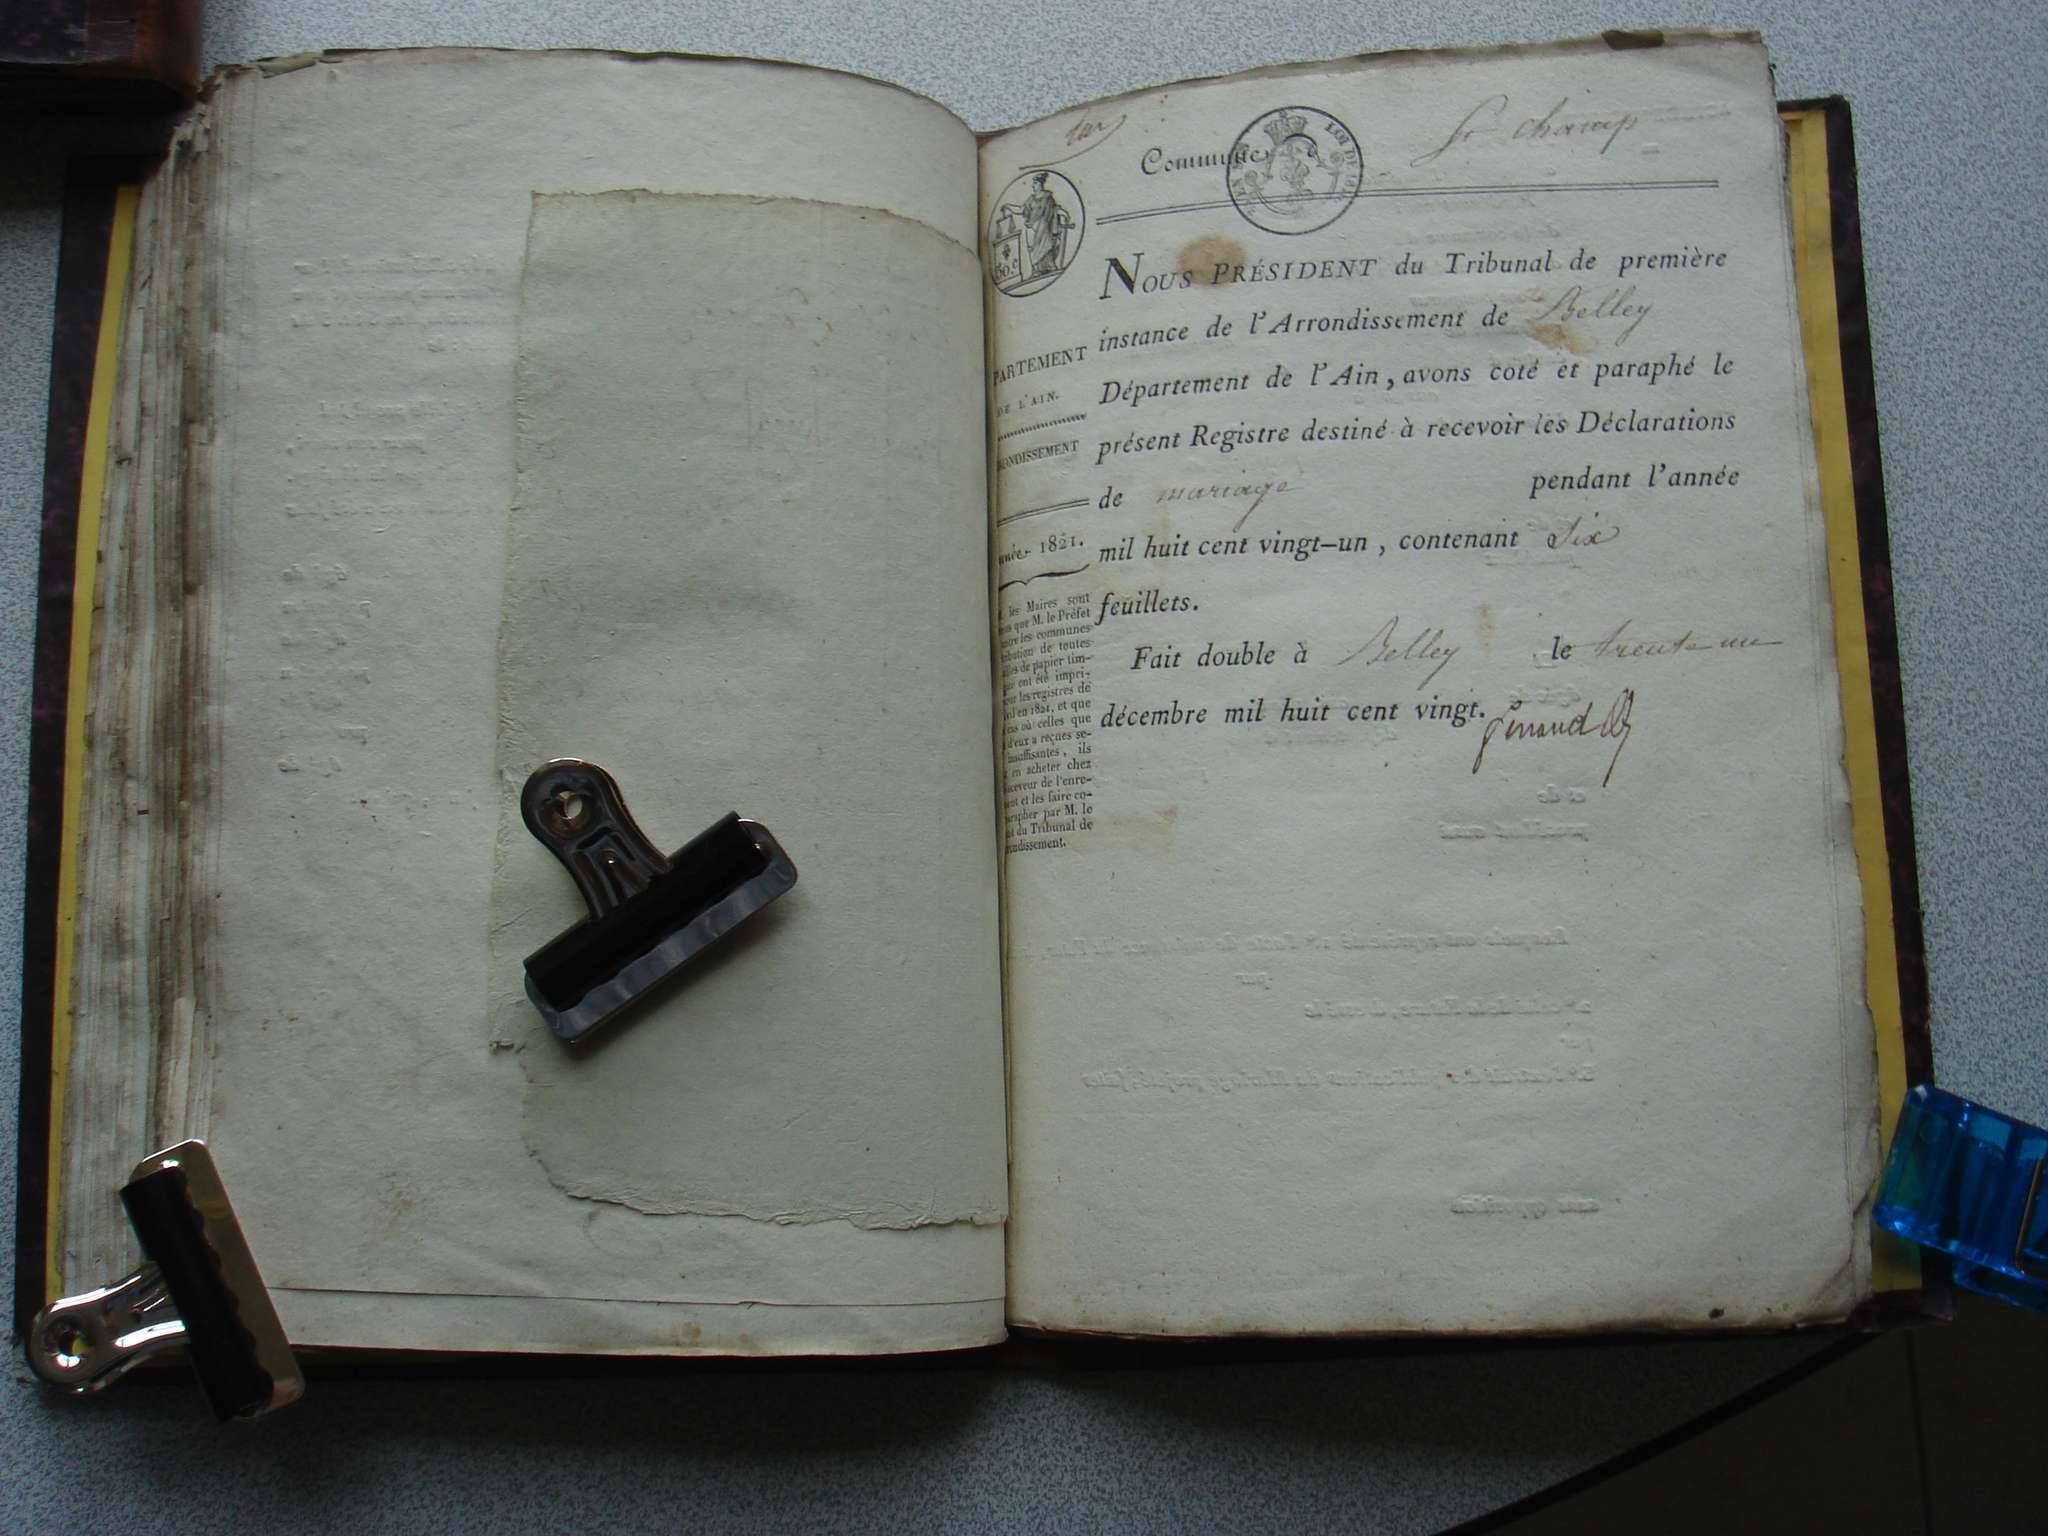 Commune St champ
LOI DE
50.c
NOUS PRÉSIDENT du Tribunal de première
instance de l'Arrondissement de Belley
Département de l'Ain, avons coté et paraphé le
présent Registre destiné à recevoir les Déclarations
de mariage pendant l'année
mil huit cent vingt-un, contenant Six
feuillets.
Fait double à Belley le trente un
décembre mil huit cent vingt.
PARTEMENT
DE L'AIN.
ONDISSEMENT
nnée 1821.
les Maires sont
que M. le Préfet
les communes
bution de toutes
les de papier tim-
ont été impri-
les registres de
en 1821, et que
cas où celles que
d'eux a reçues se-
insuffisantes, ils
en acheter chez
eceveur de l'enre-
ent et les faire co-
arapher par M. le
du Tribunal de
rondissement.